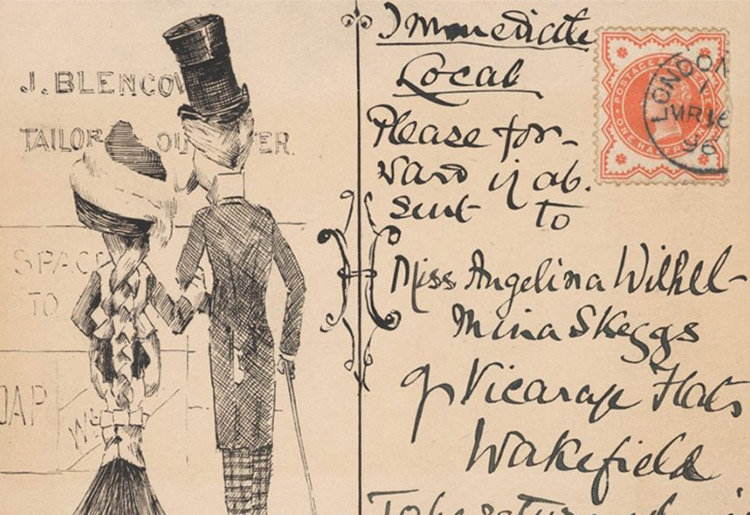 J. BLENCOW
TAILOR OU ER.
SPACE
TO
OAP
Immediate
Local
Please for-
ward if ab.
sent to
Miss Angelina Wilhel-
mina Skeggs
9 Vicarage Flats
Wakefield
To be returned
POSTAGE
ONE HALFPENNY
LONDON
MR 16
96